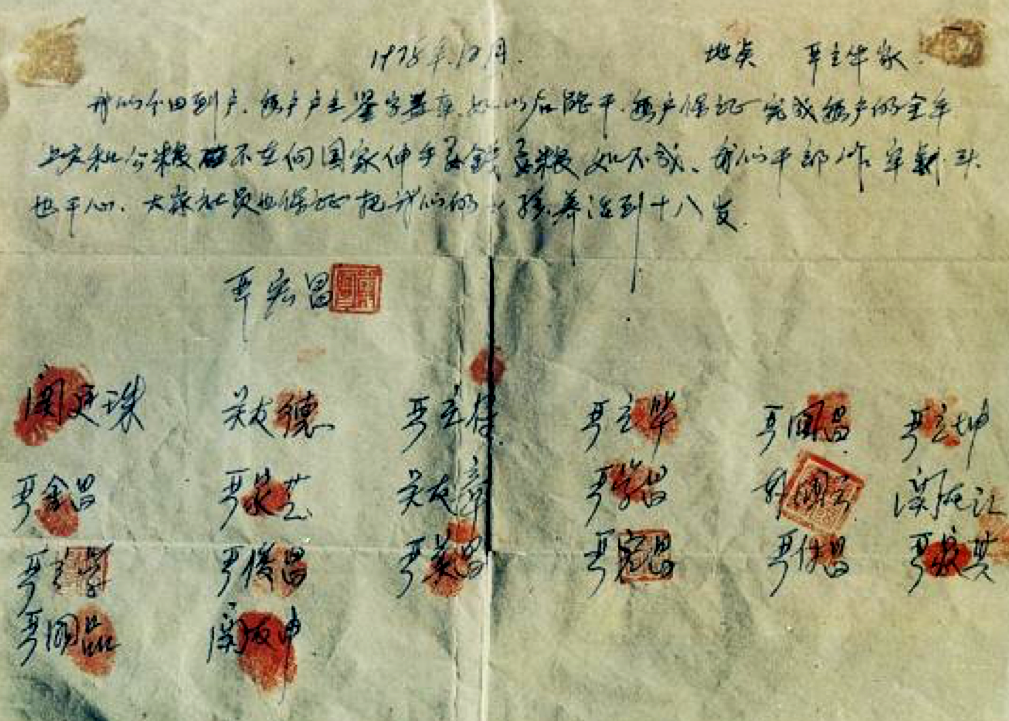 1978年12月. 地点 严立华家.
我们分田到户.每户户主签字盖章.如以后能干.每户保证完成每户的全年
上交和公粮.不在向国家伸手要钱要粮.如不成.我们干部作牢剎头
也干心.大家社员也保证把我们的小孩养活到十八岁.
严宏昌
关廷珠 关友德 严立符 严立华 严国昌 严立坤
严金昌 严家芝 关友章 严学昌 韩国云 关友江
严立学 严俊昌 严美昌 严宏昌 严付昌 严家其
严国品 关友申